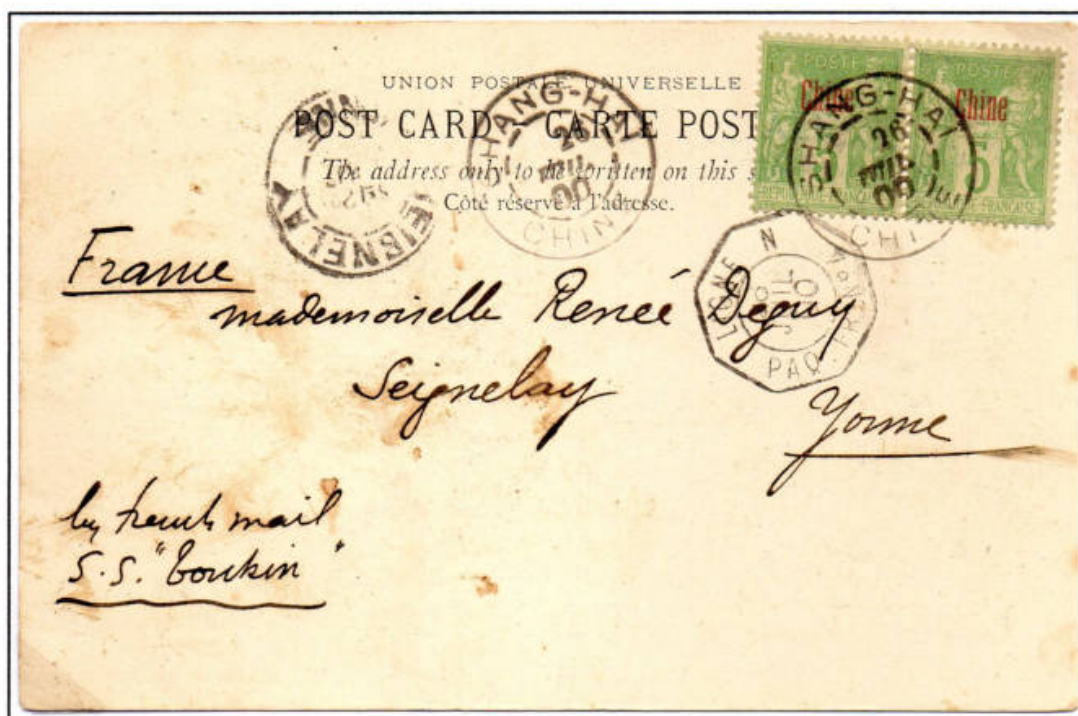 UNION POSTALE UNIVERSELLE
POST CARD CARTE POST
The address only to be written on this s
Côté réservé à l'adresse.
POSTE
Chine
Chine
5
SHANG-HAI
26
JUIL
00
CHINE
SHANG-HAI
26
JUIL
00
CHI
SEIGNELAY
LIGNE N
PAQ. FR. No
France
mademoiselle Renée Deguy
Seignelay
Yonne
by french mail
S.S. "Tonkin"